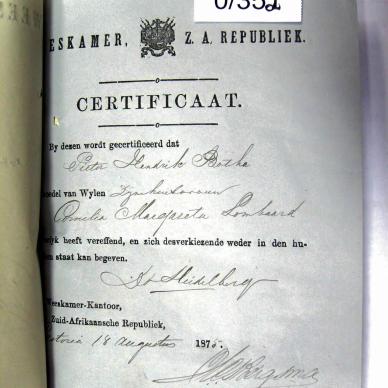 0/352
ESKAMER, Z. A. REPUBLIEK.
CERTIFICAAT.
By dezen wordt gecertificeerd dat
Pieter Hendrik Botha
oedel van Wylen
Cornelia Margareta Lombaard
lyk heeft vereffend, en zich desverkiezende weder in den hu-
en staat kan begeven.
Heidelberg
Weeskamer-Kantoor,
Zuid-Afrikaansche Republiek,
etoria 18 augustus 187